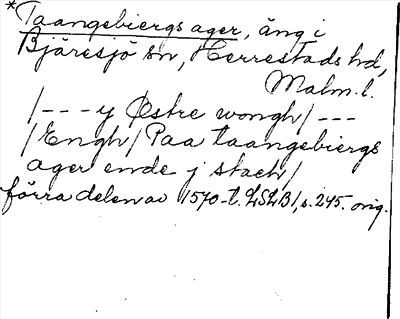 *Taangebiergs ager, äng i
Bjäresjö sn, Herrestads hd,
Malm. l.
/---y Østre wongh/---
/Engh/ Paa taangebiergs
ager ende j stach/
förra delen av 1570-t. LSLB1, s. 245. orig.